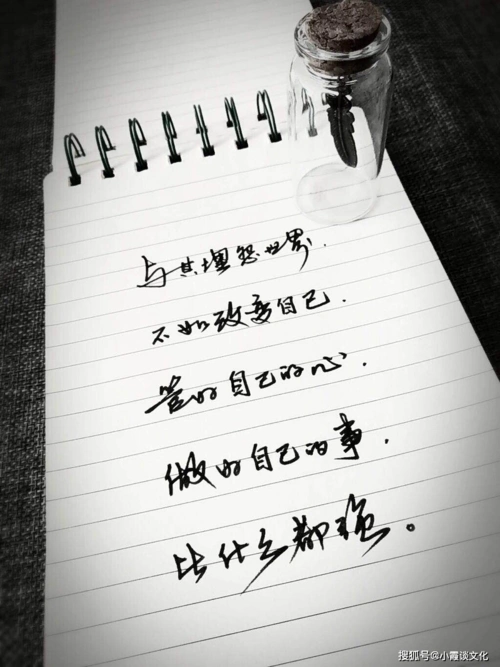 与其埋怨世界.
不如改变自己.
管好自己的心.
做好自己的事.
比什么都强。
搜狐号@小霞谈文化